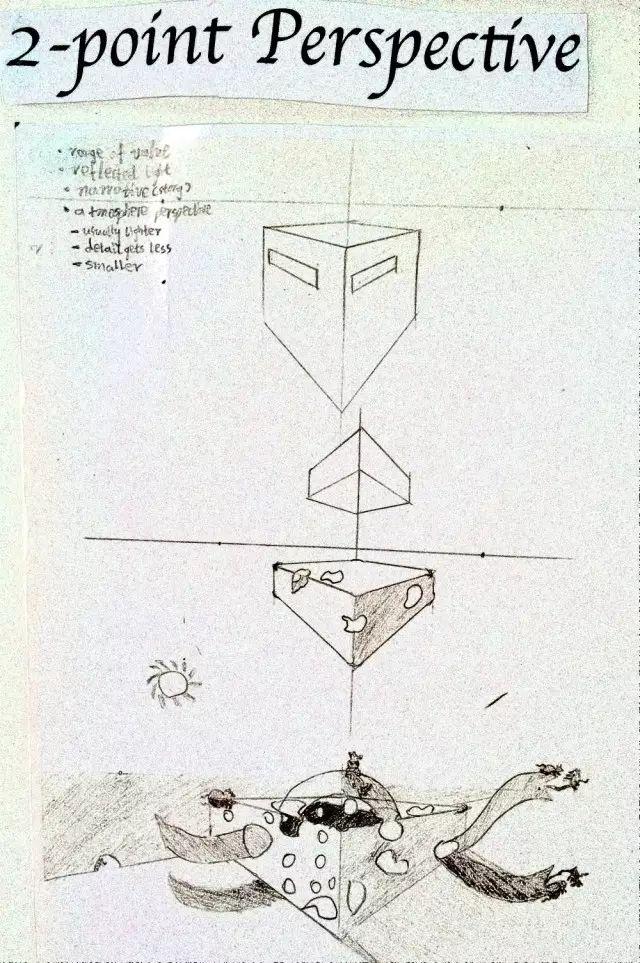 2-point Perspective
• range of value
• reflected light
• narrative (story)
• atmosphere perspective
- usually lighter
- detail gets less
- smaller